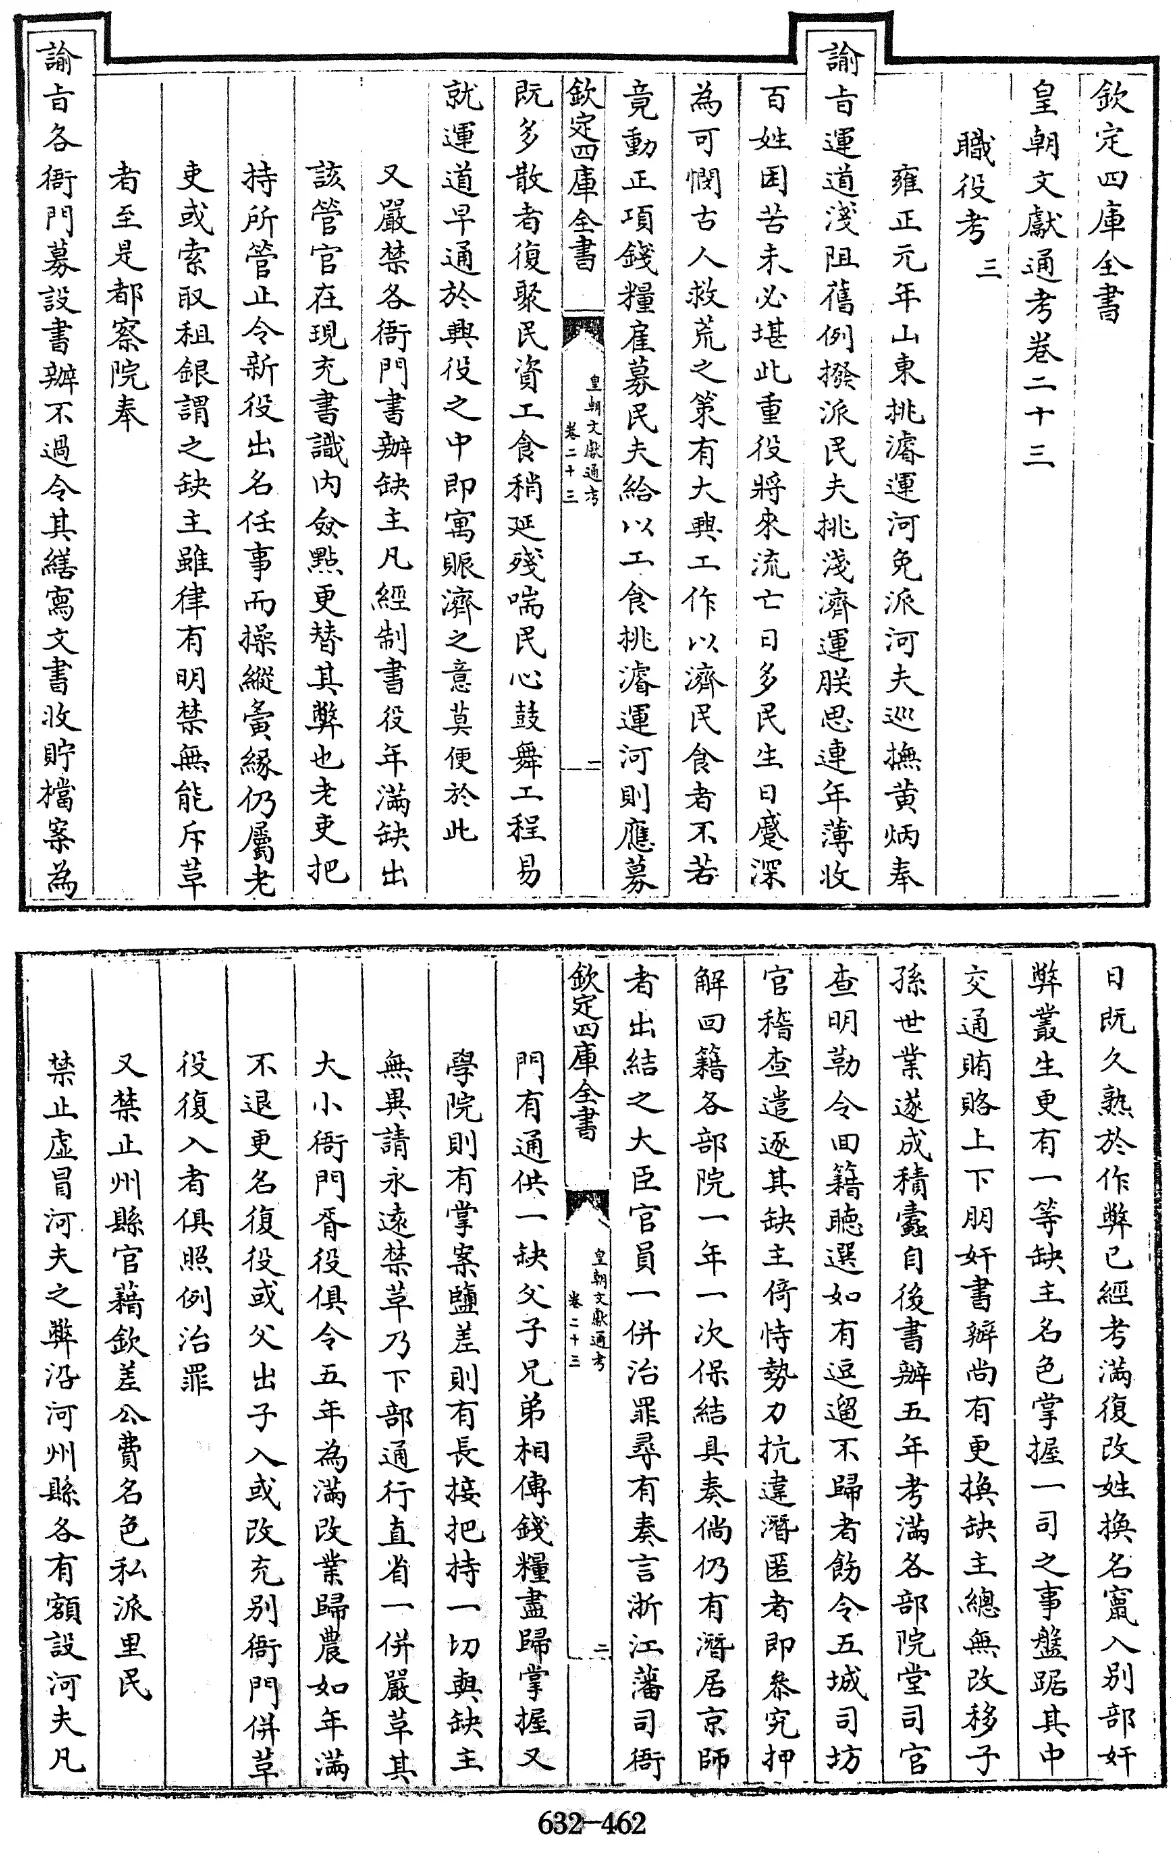 欽定四庫全書
皇朝文獻通考卷二十三
職役考三
雍正元年山東挑濬運河免派河夫巡撫黄炳奉
諭旨運道淺阻舊例撥派民夫挑淺濟運朕思連年薄收
百姓困苦未必堪此重役將來流亡日多民生日蹙深
為可憫古人救荒之策有大興工作以濟民食者不若
竟動正項錢糧雇募民夫給以工食挑濬運河則應募
欽定四庫全書
皇朝文獻通考
卷二十三
一
既多散者復聚民資工食稍延殘喘民心鼓舞工程易
就運道早通於興役之中即寓賑濟之意莫便於此
又嚴禁各衙門書辦缺主凡經制書役年滿缺出
該管官在現充書識内僉點更替其弊也老吏把
持所管止令新役出名任事而操縱夤緣仍屬老
吏或索取租銀謂之缺主雖律有明禁無能斥革
者至是都察院奉
諭旨各衙門募設書辦不過令其繕寫文書收貯檔案為
日既久熟於作弊已經考滿復改姓換名竄入别部奸
弊叢生更有一等缺主名色掌握一司之事盤踞其中
交通賄賂上下朋奸書辦尚有更換缺主總無改移子
孫世業遂成積蠹自後書辦五年考滿各部院堂司官
查明勒令回籍聽選如有逗遛不歸者飭令五城司坊
官稽查遣逐其缺主倚恃勢力抗違潛匿者即叅究押
解回籍各部院一年一次保結具奏倘仍有潛居京師
者出結之大臣官員一併治罪尋有奏言浙江藩司衙
欽定四庫全書
皇朝文獻通考
卷二十三
二
門有通供一缺父子兄弟相傳錢糧盡歸掌握又
學院則有掌案鹽差則有長接把持一切與缺主
無異請永遠禁革乃下部通行直省一併嚴革其
大小衙門胥役俱令五年為滿改業歸農如年滿
不退更名復役或父出子入或改充别衙門併革
役復入者俱照例治罪
又禁止州縣官藉欽差公費名色私派里民
禁止虛冒河夫之弊沿河州縣各有額設河夫凡
632-462